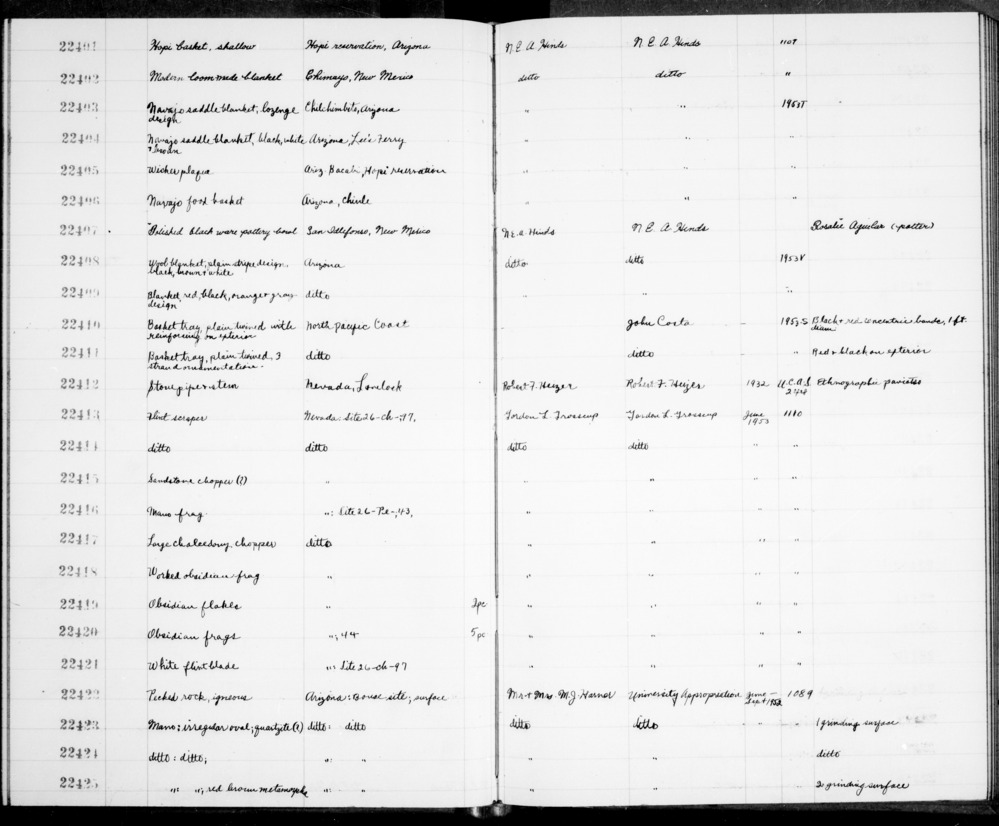 22401 Hopi basket, shallow Hopi reservation, Arizona N.E.A. Hinds N.E.A. Hinds 1107
22402 Modern loom made blanket Chimayo, New Mexico ditto ditto "
22403 Navajo saddle blanket, lozenge Chilchinbito, Arizona " " 1953T
design
22404 Navajo saddle blanket, black, white Arizona, Lee's Ferry " " "
+ brown
22405 Wicker plaque Ariz. Bacabi, Hopi reservation " " "
22406 Navajo food basket Arizona, Chinle " " "
22407 Polished black ware pottery bowl San Ildefonso, New Mexico N.E.A. Hinds N.E.A. Hinds Rosalie Aguilar (potter)
22408 Wool blanket, plain stripe design, Arizona ditto ditto 1953V
black, brown + white
22409 Blanket, red, black, orange + gray ditto " " "
design
22410 Basket tray, plain twined with North Pacific Coast John Costa – 1953S Black + red concentric bands, 1 ft.
reinforcing on exterior diam
22411 Basket tray, plain twined, 3 ditto ditto " Red + black on exterior
strand ornamentation.
22412 Stone pipe + stem Nevada, Lovelock Robert F. Heizer Robert F. Heizer 1932 U.C.A.S. Ethnographic
244
22413 Flint scraper Nevada: Site 26-Ch-97, Gordon L. Grosscup Gordon L. Grosscup June 1110
1953
22414 ditto ditto ditto ditto " "
22415 Sandstone chopper (?) " " " " "
22416 Mano frag ": Site 26-Pe-43, " " " "
22417 Large chalcedony chopper ditto " " " "
22418 Worked obsidian frag " " " " "
22419 Obsidian flakes " 2pc " " " "
22420 Obsidian frags "; 44 5pc " " " "
22421 White flint blade ": Site 26-Ch-97 " " " "
22422 Pecked rock, igneous Arizona: Bouse site; surface Mr + Mrs. M.J. Harner University Appropriation June– 1089
Sept 1952
22423 Mano; irregular oval; quartzite (?) ditto: ditto ditto ditto " " 1 grinding surface
22424 ditto: ditto; ": " " " " " ditto
22425 ": "; red brown metamorphic ": " " " " " 2 grinding surface